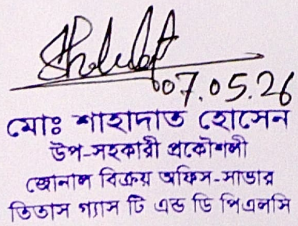 07.05.26
মোঃ শাহাদাত হোসেন
উপ-সহকারী প্রকৌশলী
জোনাল বিক্রয় অফিস-সাভার
তিতাস গ্যাস টি এন্ড ডি পিএলসি